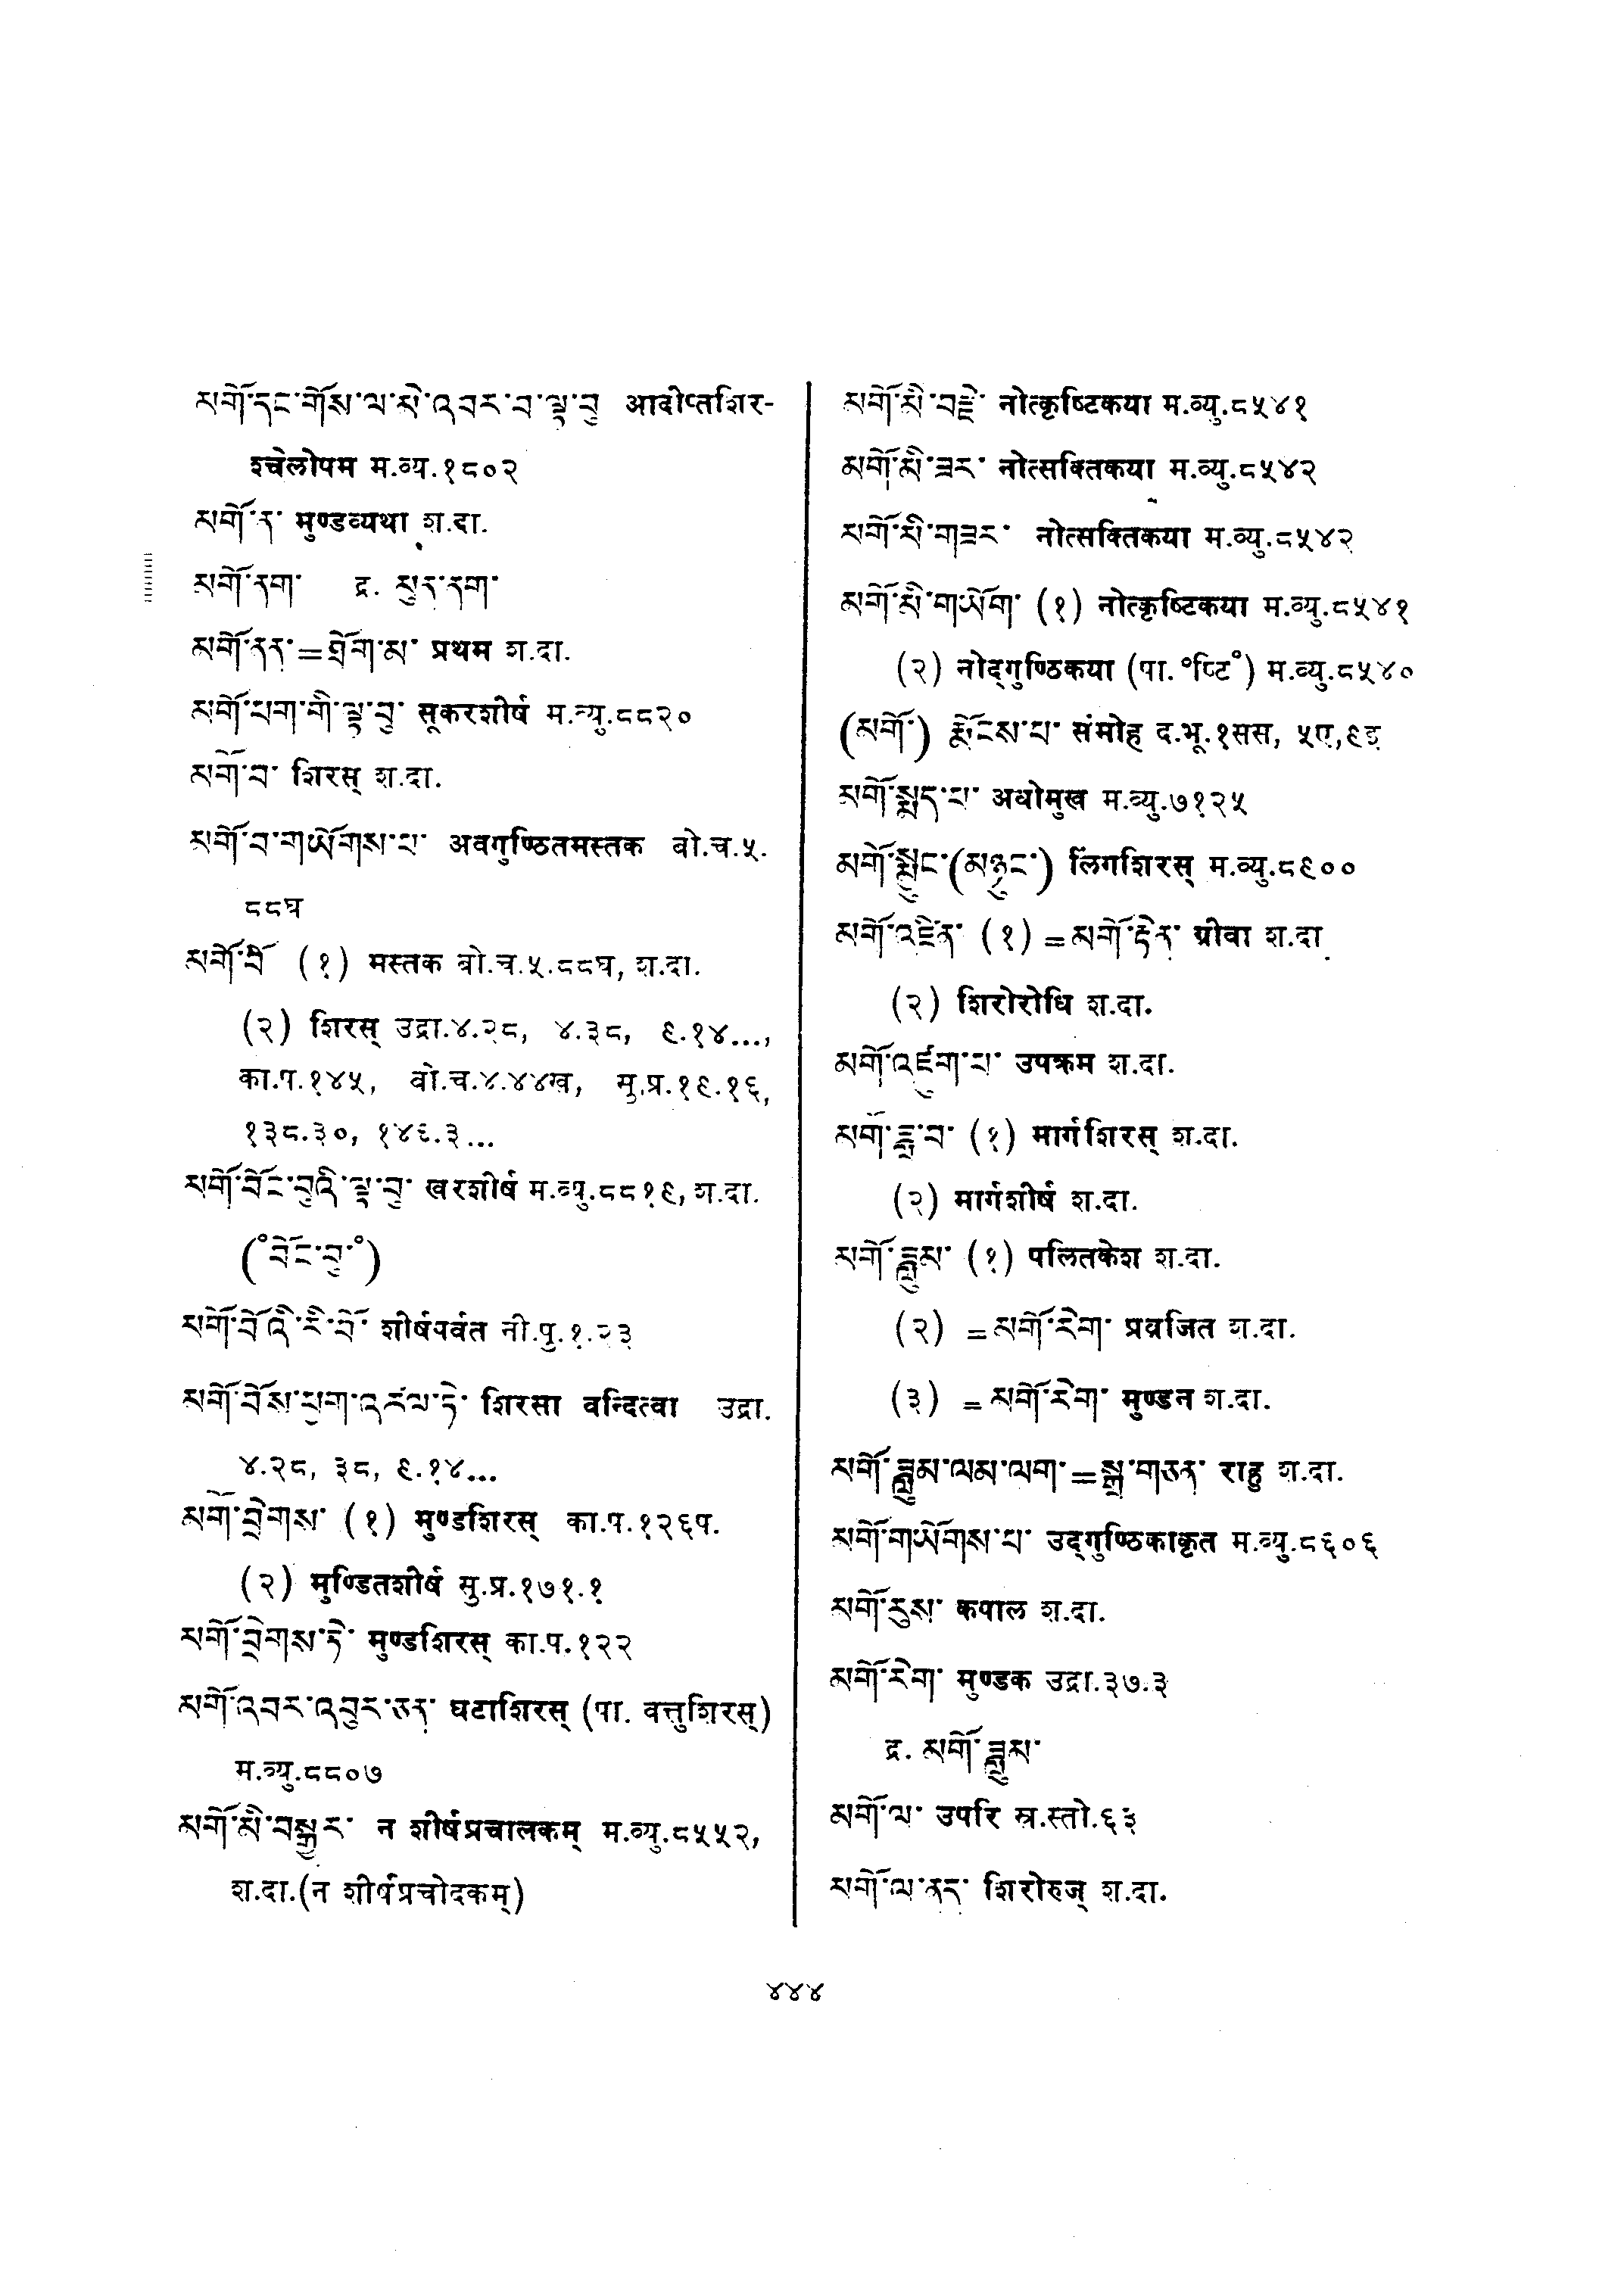 མགོ་དང་གོས་ལ་མེ་འབར་བ་ལྟ་བུ་ आदीप्तशिर-
श्चेलोपम म.व्य.१८०२
མགོ་ན་ मुण्डव्यथा श.दा.
མགོ་ནག་ द्र. མུན་ནག་
མགོ་ནན་=ཐོག་མ་ प्रथम श.दा.
མགོ་ཕག་གི་ལྟ་བུ་ सूकरशीर्ष म.व्यु.८८२०
མགོ་བ་ शिरस् श.दा.
མགོ་བ་གཡོགས་པ་ अवगुण्ठितमस्तक बो.च.५.
८८घ
མགོ་བོ་ (१) मस्तक बो.च.५.८८घ, श.दा.
(२) शिरस् उद्रा.४.२८, ४.३८, ९.१४...,
का.प.१४५, बो.च.४.४४ख, सु.प्र.१९.१६,
१३८.३०, १४६.३...
མགོ་བོང་བུའི་ལྟ་བུ་ खरशीर्ष म.व्यु.८८१९, श.दा.
(°བོང་བུ་°)
མགོ་བོའི་རི་བོ་ शीर्षपर्वत नी.पु.१.२३
མགོ་བོས་ཕྱག་འཚལ་ཏེ་ शिरसा वन्दित्वा उद्रा.
४.२८, ३८, ९.१४...
མགོ་བྲེགས་ (१) मुण्डशिरस् का.प.१२६प.
(२) मुण्डितशीर्ष सु.प्र.१७१.१
མགོ་བྲེགས་ཏེ་ मुण्डशिरस् का.प.१२२
མགོ་འབར་འབུར་ཅན་ घटाशिरस् (पा. वत्तुशिरस्)
म.व्यु.८८०७
མགོ་མི་བསྒྱུར་ न शीर्षप्रचालकम् म.व्यु.८५५२,
श.दा.(न शीर्षप्रचोदकम्)
མགོ་མི་བརྫེ་ नोत्कृष्टिकया म.व्यु.८५४१
མགོ་མི་ཟར་ नोत्सक्तिकया म.व्यु.८५४२
མགོ་མི་གཟར་ नोत्सक्तिकया म.व्यु.८५४२
མགོ་མི་གཡོག་ (१) नोत्कृष्टिकया म.व्यु.८५४१
(२) नोद्गुण्ठिकया (पा.°ष्टि°) म.व्यु.८५४०
(མགོ་) རྨོངས་པ་ संमोह द.भू.१सस, ५ए,९इ
མགོ་སྨད་པ་ अधोमुख म.व्यु.७१२५
མགོ་སྨྱུང་(མཉུང་) लिंगशिरस् म.व्यु.८९००
མགོ་འཛིན་ (१) =མགོ་རྟེན་ ग्रीवा श.दा.
(२) शिरोरोधि श.दा.
མགོ་འཛུག་པ་ उपक्रम श.दा.
མགོ་ཟླ་བ་ (१) मार्गशिरस् श.दा.
(२) मार्गशीर्ष श.दा.
མགོ་ཟླུམ་ (१) पलितकेश श.दा.
(२) =མགོ་རེག་ प्रव्रजित श.दा.
(३) =མགོ་རེག་ मुण्डन श.दा.
མགོ་ཟླུམ་ལམ་ལག་=སྒྲ་གཅན་ राहु श.दा.
མགོ་གཡོགས་པ་ उद्गुण्ठिकाकृत म.व्यु.८६०६
མགོ་རུས་ कपाल श.दा.
མགོ་རེག་ मुण्डक उद्रा.३७.३
द्र. མགོ་ཟླུམ་
མགོ་ལ་ उपरि स्र.स्तो.६३
མགོ་ལ་ནད་ शिरोरुज् श.दा.
४४४